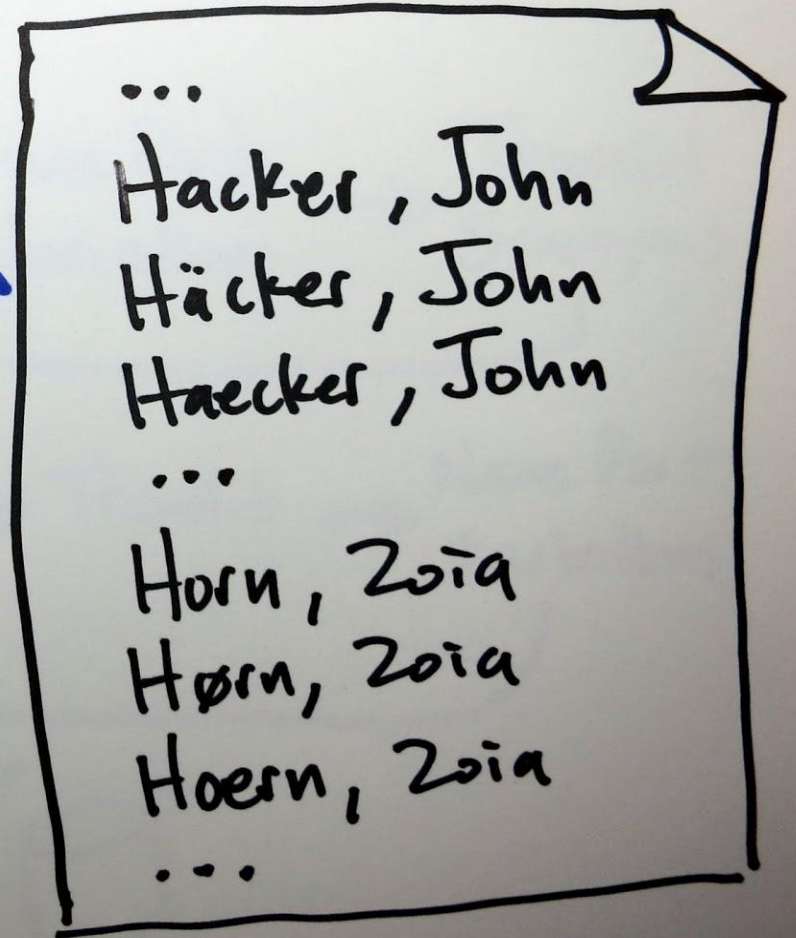 ...
Hacker, John
Häcker, John
Haecker, John
...
Horn, Zoia
Hørn, Zoia
Hoern, Zoia
...